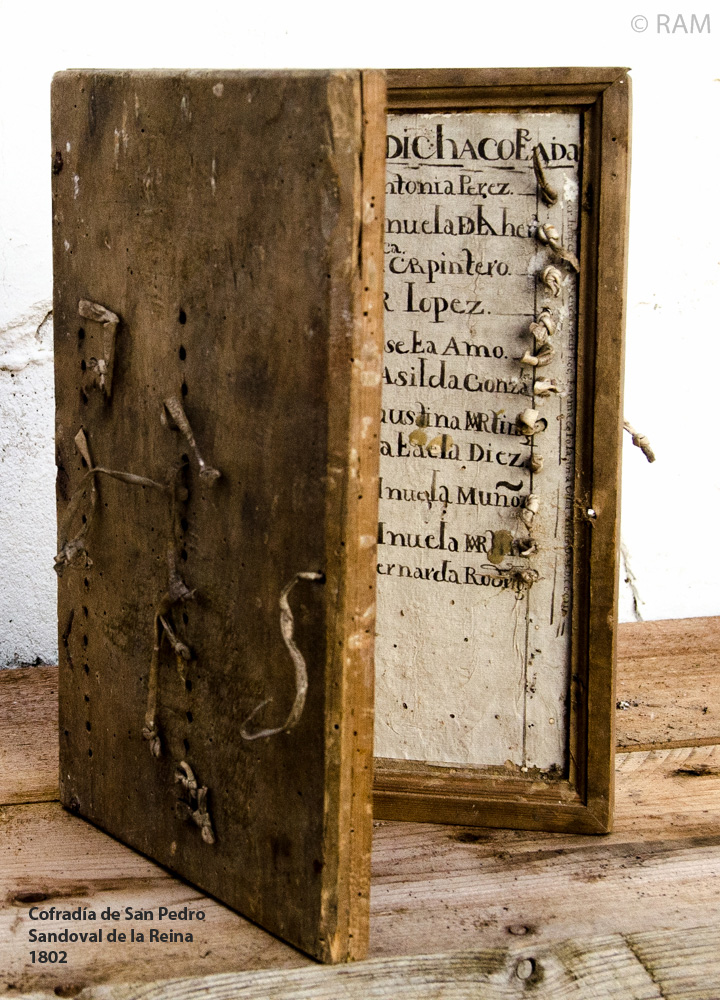 © RAM
DIChACOFRADIA
ntonia Perez.
nuela DElher
ca.
CARpintero.
R lopez.
se ta Amo.
Asilda Gonza
austina MARtin
afaela Diez
nuela Muñoz
nuela MARtin
ernarda Rodrig
Cofradía de San Pedro
Sandoval de la Reina
1802